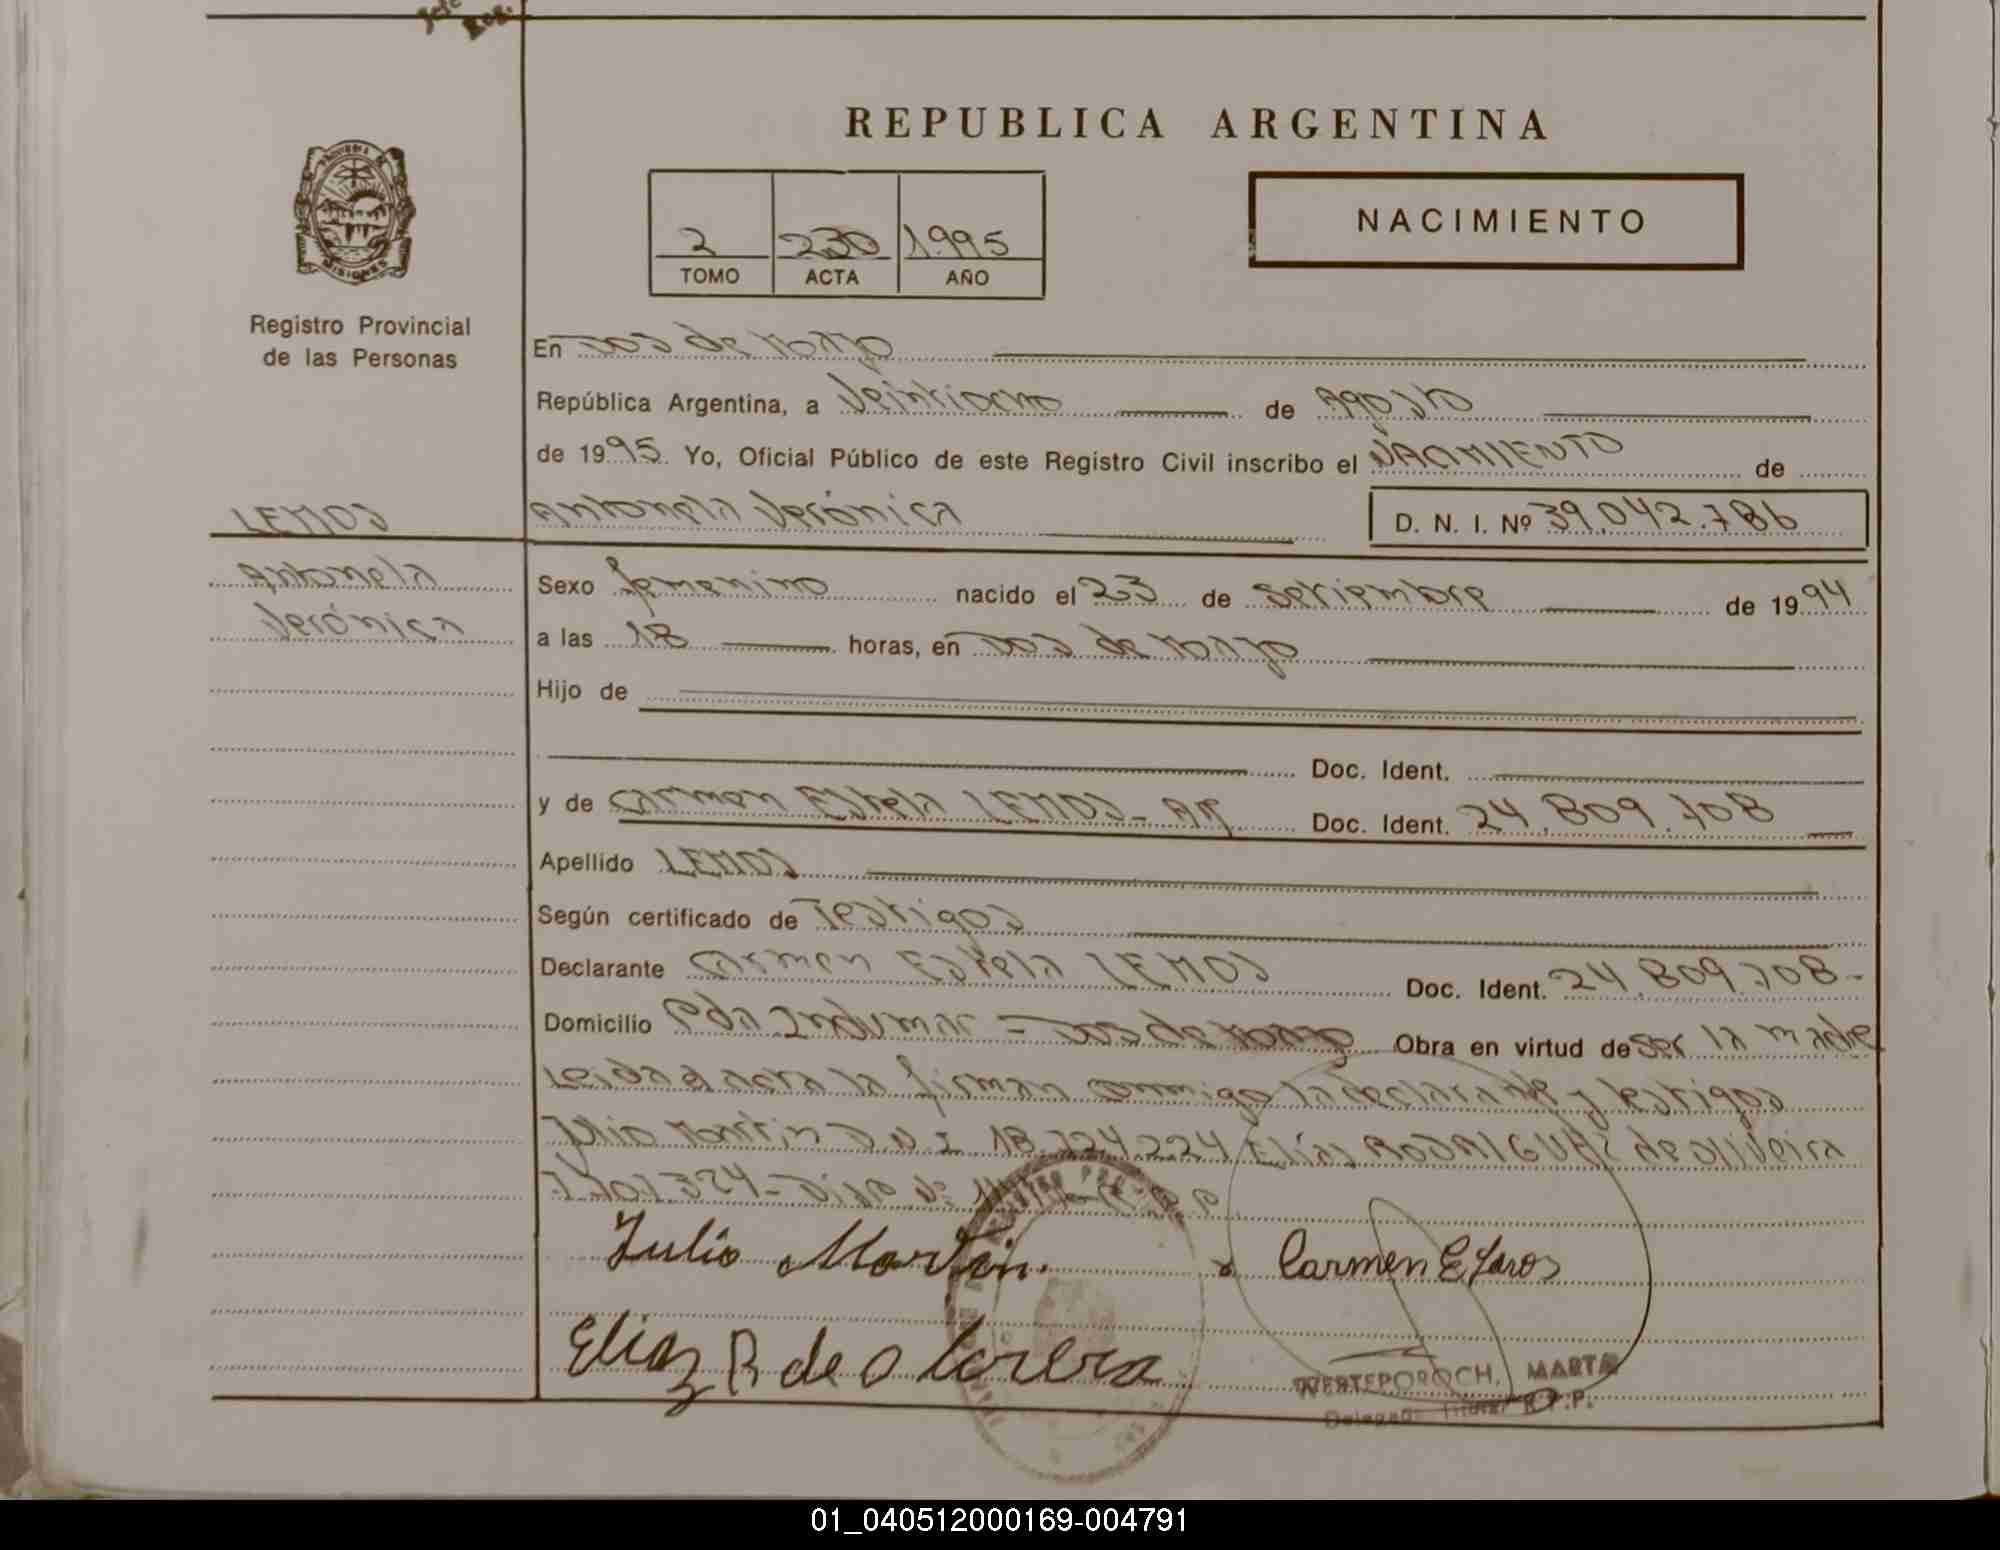 REPUBLICA ARGENTINA
NACIMIENTO
2 230 1995
TOMO ACTA AÑO
PROVINCIA DE
MISIONES
Registro Provincial
de las Personas
En Dos de Mayo
República Argentina, a Veintiocho de Agosto
de 1995. Yo, Oficial Público de este Registro Civil inscribo el NACIMIENTO de
LEMOS
Antonela Verónica
D. N. I. Nº 39.042.786
Antonela
Verónica
Sexo femenino nacido el 23 de Setiembre de 1994
a las 18 horas, en Dos de Mayo
Hijo de
Doc. Ident.
y de Carmen Estela LEMOS - Ar Doc. Ident. 24.809.708
Apellido LEMOS
Según certificado de Testigos
Declarante Carmen Estela LEMOS Doc. Ident. 24.809.708-
Domicilio Pda Indumar - Dos de Mayo Obra en virtud de ser la madre
Leida el acta la firman conmigo la declarante y testigos
Julio Martin D.N.I. 18.724.224 Elías RODRIGUEZ de Oliveira
Disp. Nº
Julio Martin.
Carmen E
Elias R de
WERTEPOROCH, MARTA
Delegado Titular R.P.P.
01_040512000169-004791